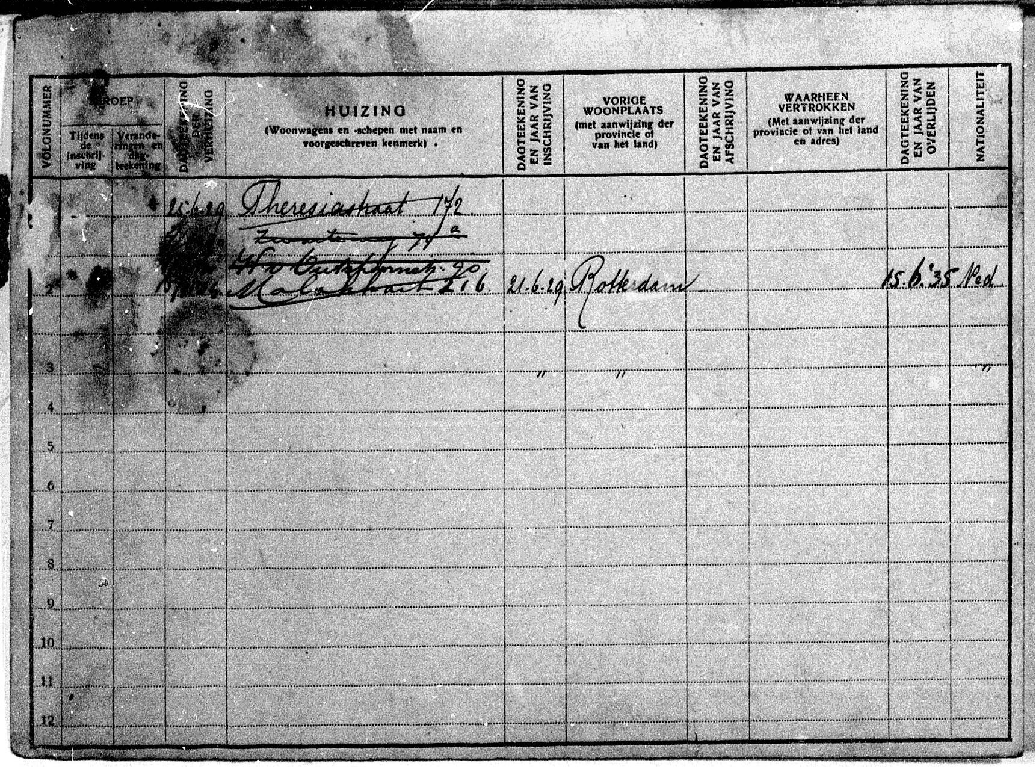 VOLGNUMMER
BEROEP
Tijdens de inschrij-ving
Verande-ringen en dag-teekening
DAGTEEKENING DER VERHUIZING
HUIZING
(Woonwagens en -schepen met naam en
voorgeschreven kenmerk)
DAGTEEKENING EN JAAR VAN INSCHRIJVING
VORIGE
WOONPLAATS
(met aanwijzing der
provincie of
van het land)
DAGTEEKENING EN JAAR VAN AFSCHRIJVING
WAARHEEN
VERTROKKEN
(Met aanwijzing der
provincie of van het land
en adres)
DAGTEEKENING EN JAAR VAN OVERLIJDEN
NATIONALITEIT
Theresiastraat 172
20
216 21-6-29 Rotterdam 15-6-'35 Ned.
3 " " "
4
5
6
7
8
9
10
11
12